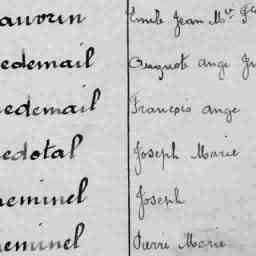 auvrin Emile Jean M.ie
edemail Auguste ange
edemail François ange
edotal Joseph Marie
eminel Joseph
eminel Pierre Marie